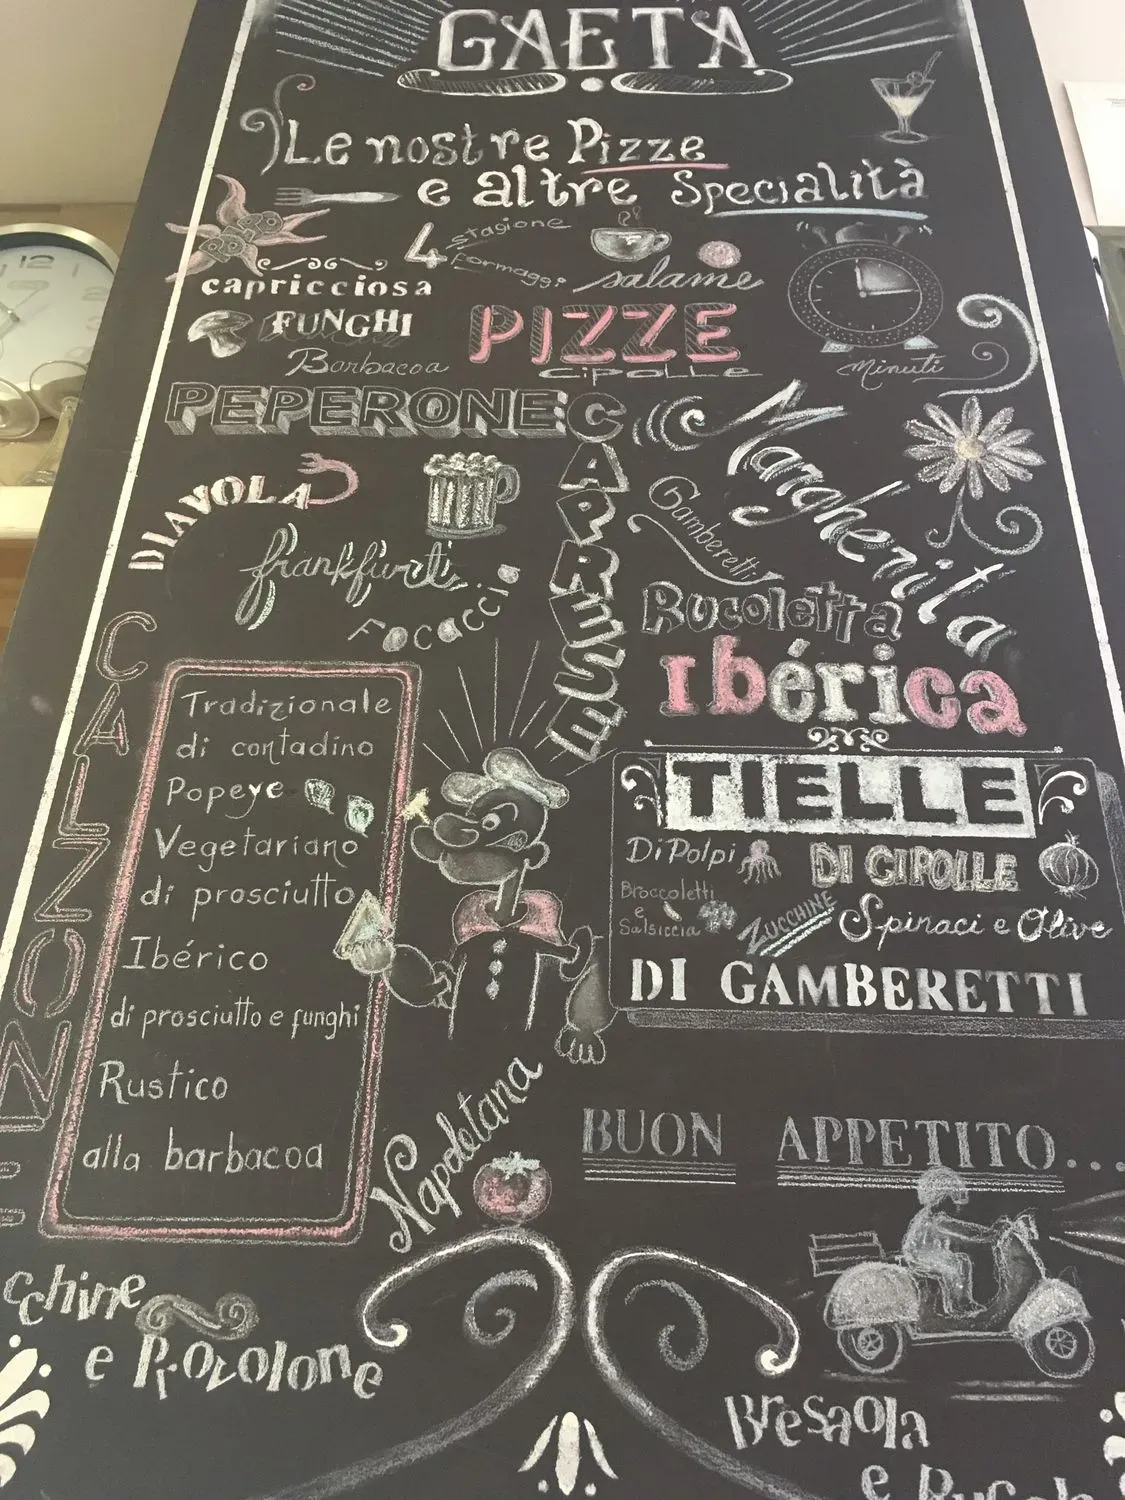 GAETA
Le nostre Pizze
e altre Specialità
4 stagione
formaggi
salame
capricciosa
FUNGHI
Barbacoa
PIZZE
cipolle
minuti
PEPERONE
CAPRESE
Margherita
Gamberetti
DIAVOLA
frankfurt
Focaccia
Rucoletta
Ibérica
CALZONI
Tradizionale
di contadino
Popeye
Vegetariano
di prosciutto
Ibérico
di prosciutto e funghi
Rustico
alla barbacoa
TIELLE
Di Polpi
DI CIPOLLE
Broccoletti
e
Salsiccia
ZUCCHINE
Spinaci e Olive
DI GAMBERETTI
Napoletana
BUON APPETITO...
cchine
e Provolone
Bresaola
e
12